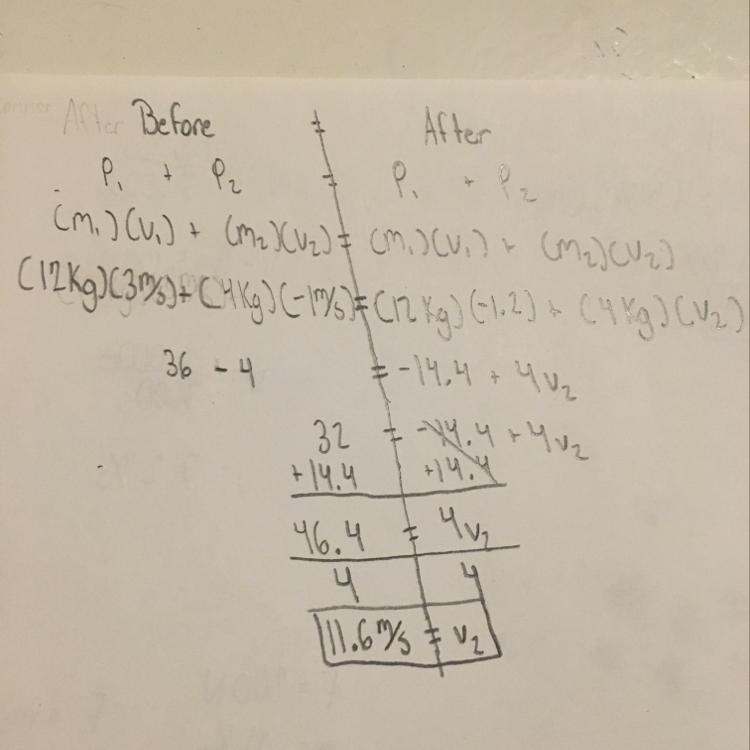 After Before = After
P₁ + P₂ = P₁ + P₂
(m₁)(v₁) + (m₂)(v₂) = (m₁)(v₁) + (m₂)(v₂)
(12Kg)(3m/s)+(4Kg)(-1m/s)=(12Kg)(-1.2) + (4Kg)(v₂)
36 - 4 = -14.4 + 4v₂
32 = -14.4 + 4v₂
+14.4 +14.4
46.4 = 4v₂
4 4
11.6 m/s = v₂